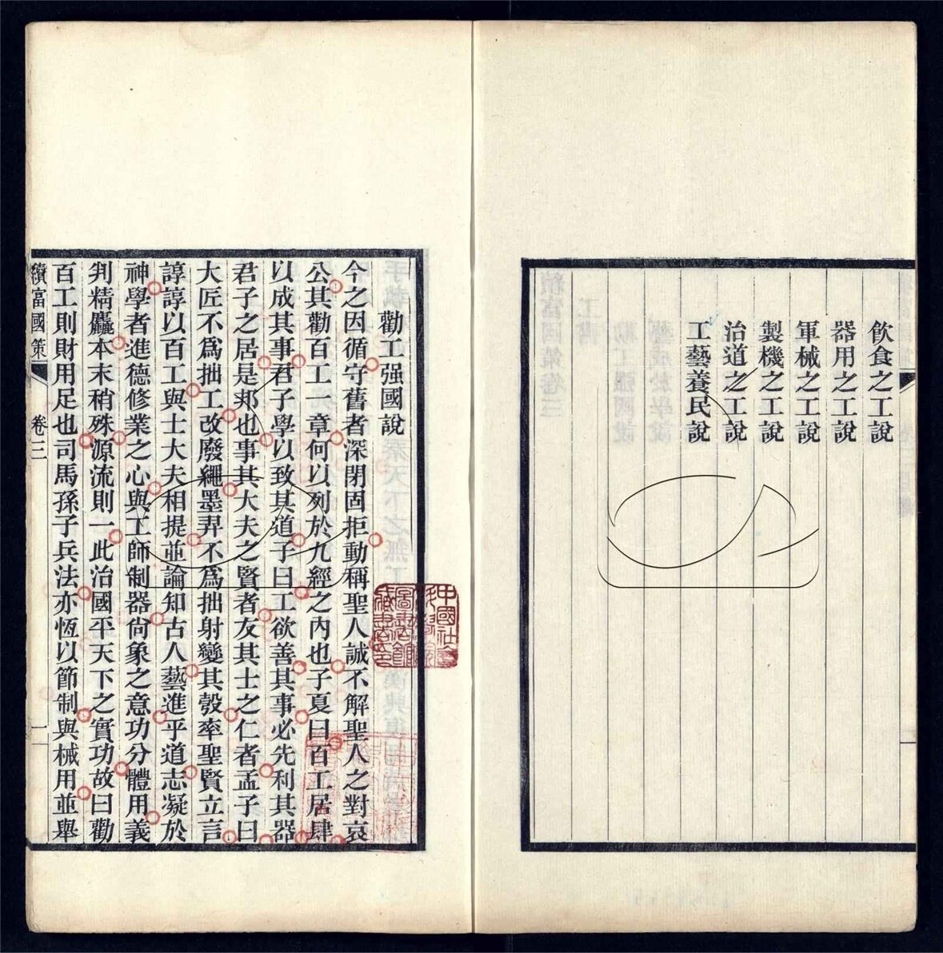 飲食之工說
器用之工說
軍械之工說
製機之工說
治道之工說
工藝養民說
勸工强國說
今之因循守舊者深閉固拒動稱聖人誠不解聖人之對哀
公其勸百工一章何以列於九經之內也子夏曰百工居肆
以成其事君子學以致其道子曰工欲善其事必先利其器
君子之居是邦也事其大夫之賢者友其士之仁者孟子曰
大匠不爲拙工改廢繩墨羿不爲拙射變其彀率聖賢立言
諄諄以百工與士大夫相提並論知古人藝進乎道志凝於
神學者進德修業之心與工師制器尙象之意功分體用義
判精麤本末稍殊源流則一此治國平天下之實功故曰勸
百工則財用足也司馬孫子兵法亦恆以節制與械用並舉
續富國策 卷三 一